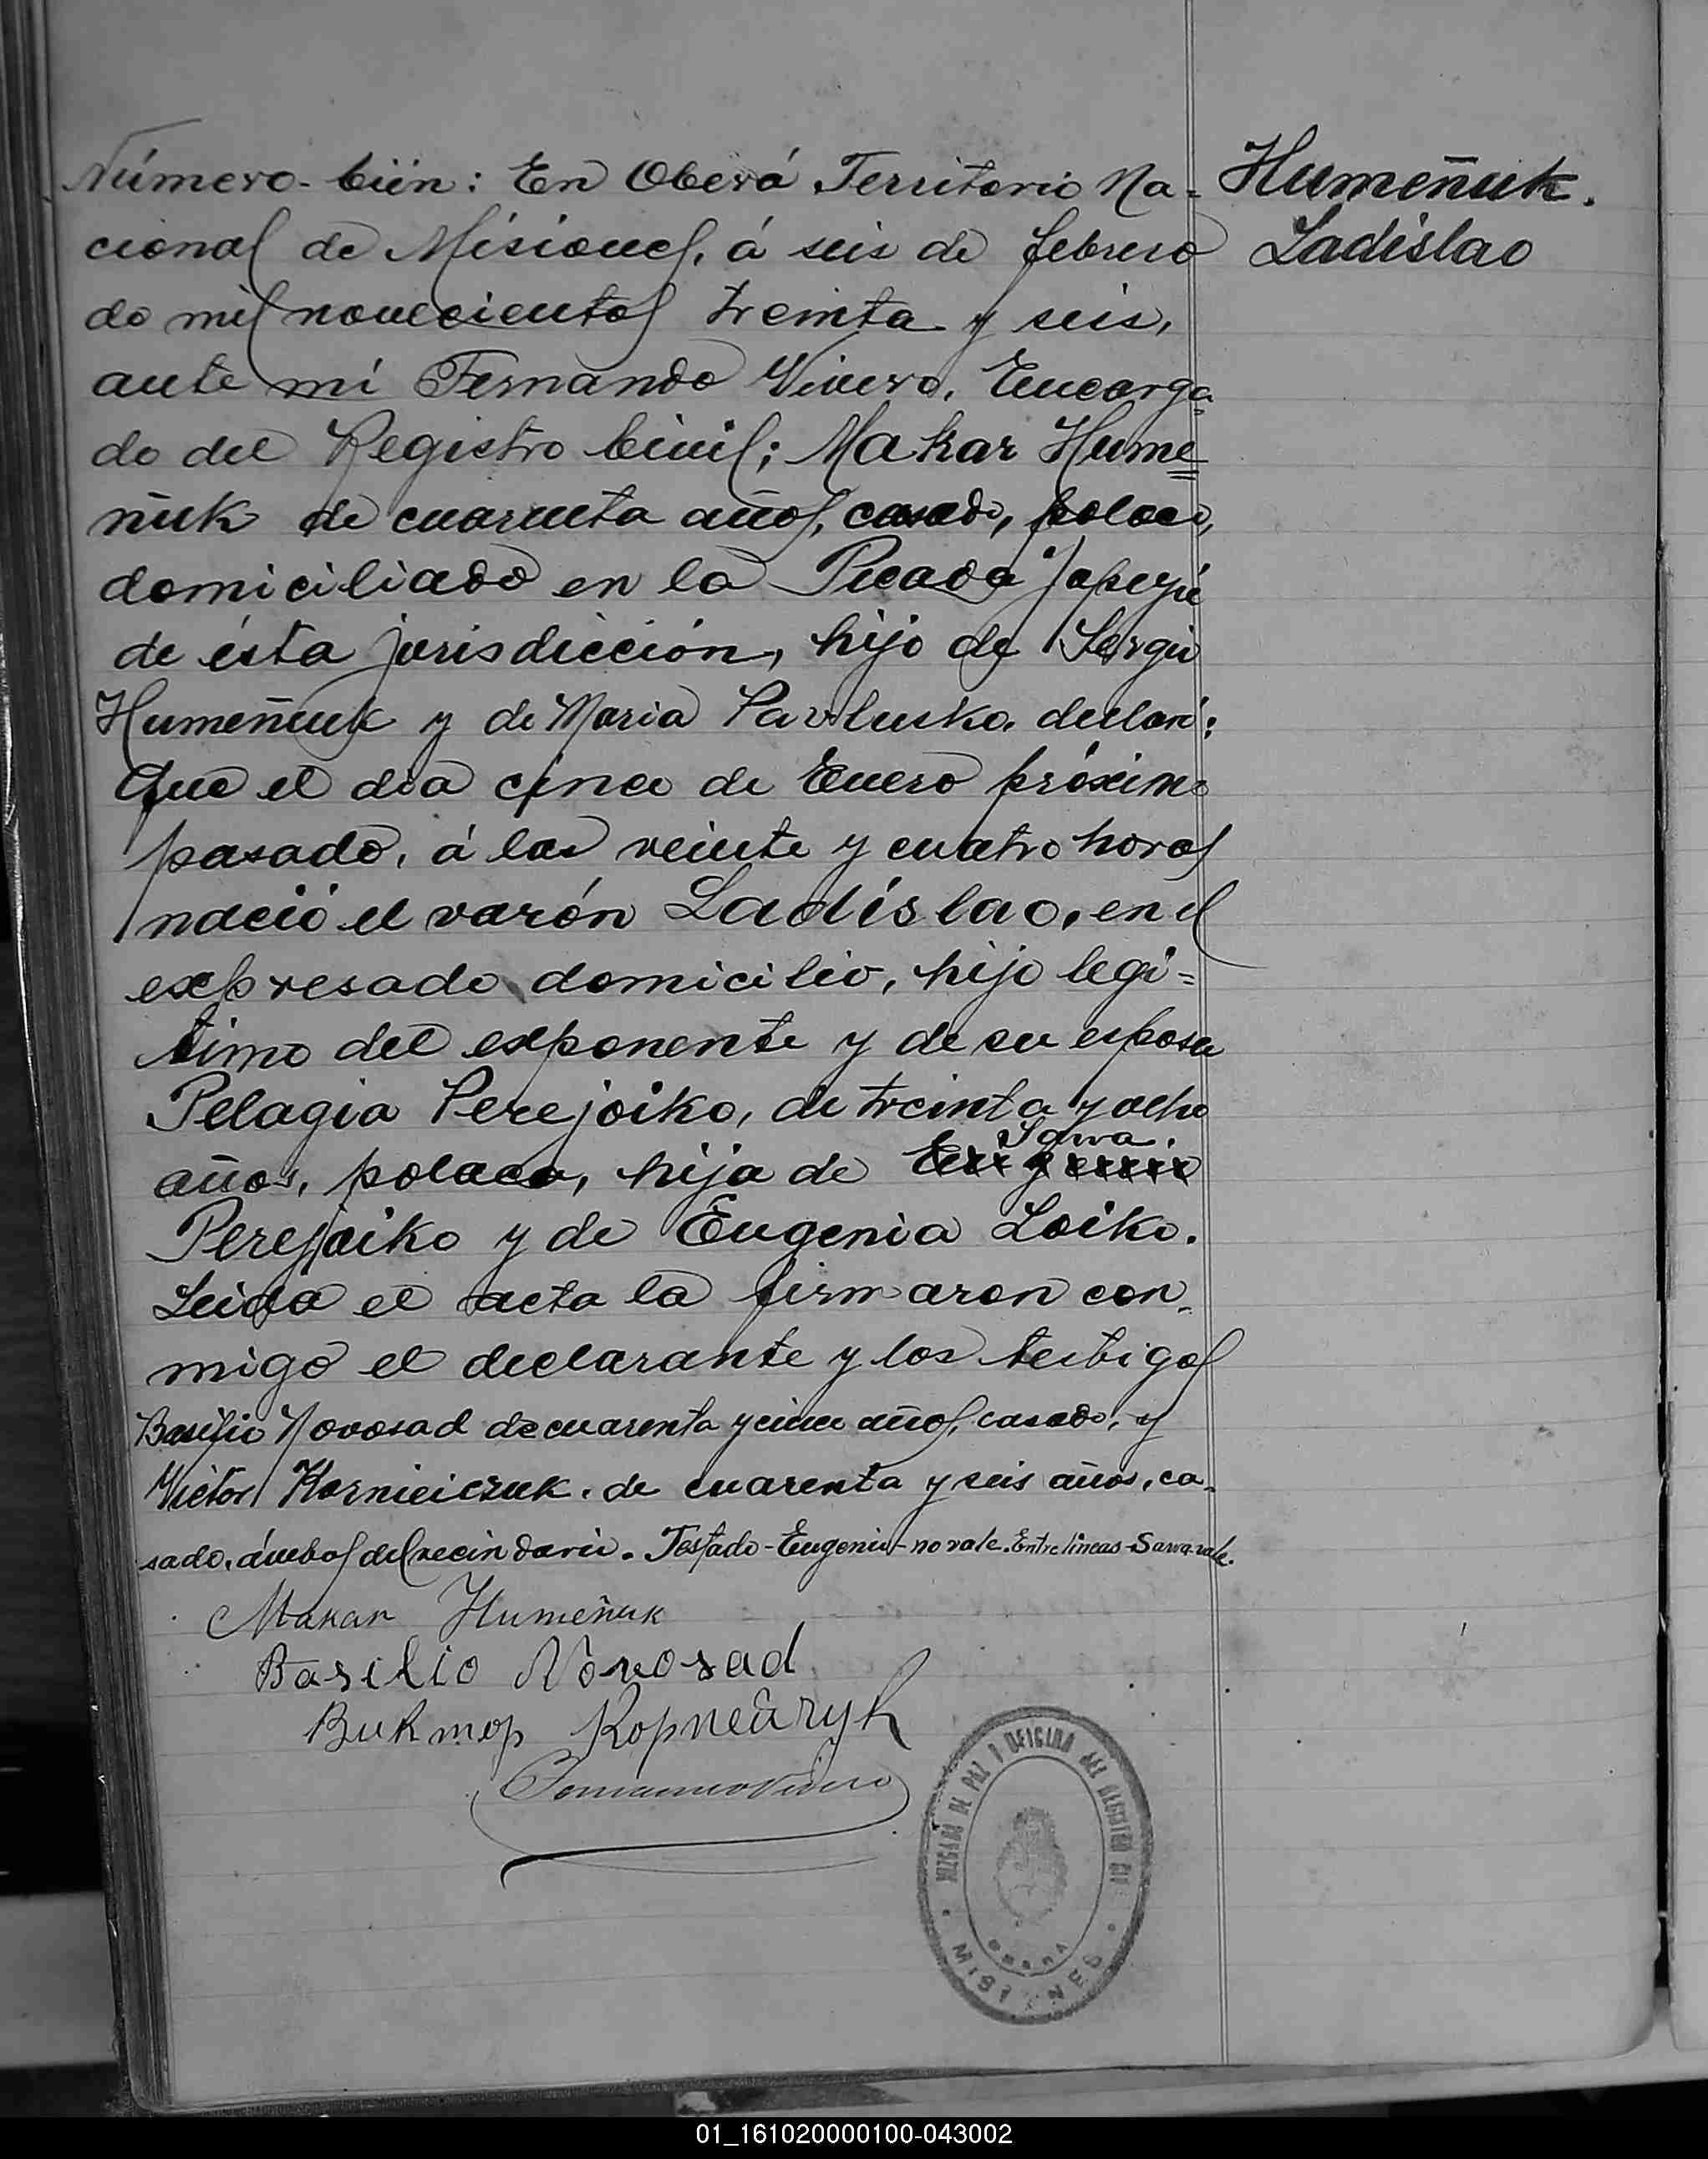 Número cién: En Oberá Territorio Na-
cional de Misiones, á seis de febrero
de mil novecientos treinta y seis,
ante mí Fernando Vivero, Encarga-
do del Registro Civil; Makar Hume=
ñuk de cuarenta años, casado, polaco,
domiciliado en la Picada Yapeyú
de ésta jurisdicción, hijo de Sergio
Humeñuk y de Maria Pavlusko, declaró:
Que el dia cinco de Enero próximo
pasado, á las veinte y cuatro horas
nació el varón Ladislao, en el
expresado domicilio, hijo legi=
timo del exponente y de su esposa
Pelagia Perejoiko, de treinta y ocho
Sawa.
años, polaca, hija de
Perejoiko y de Eugenia Loiko.
Leida el acta la firmaron con-
migo el declarante y los testigos
Basilio Novosad de cuarenta y cinco años, casado, y
Victor Kornieiczuk, de cuarenta y seis años, ca-
sado, ámbos del vecindario. Testado-Eugenio-no vale. Entrelineas-Sawa-vale.
Humeñuk.
Ladislao
Makar Humeñuk
Basilio Novosad
Виктор Корнейчук
JUZGADO DE PAZ Y OFICINA DEL REGISTRO CIVIL
OBERA
MISIONES
01_161020000100-043002